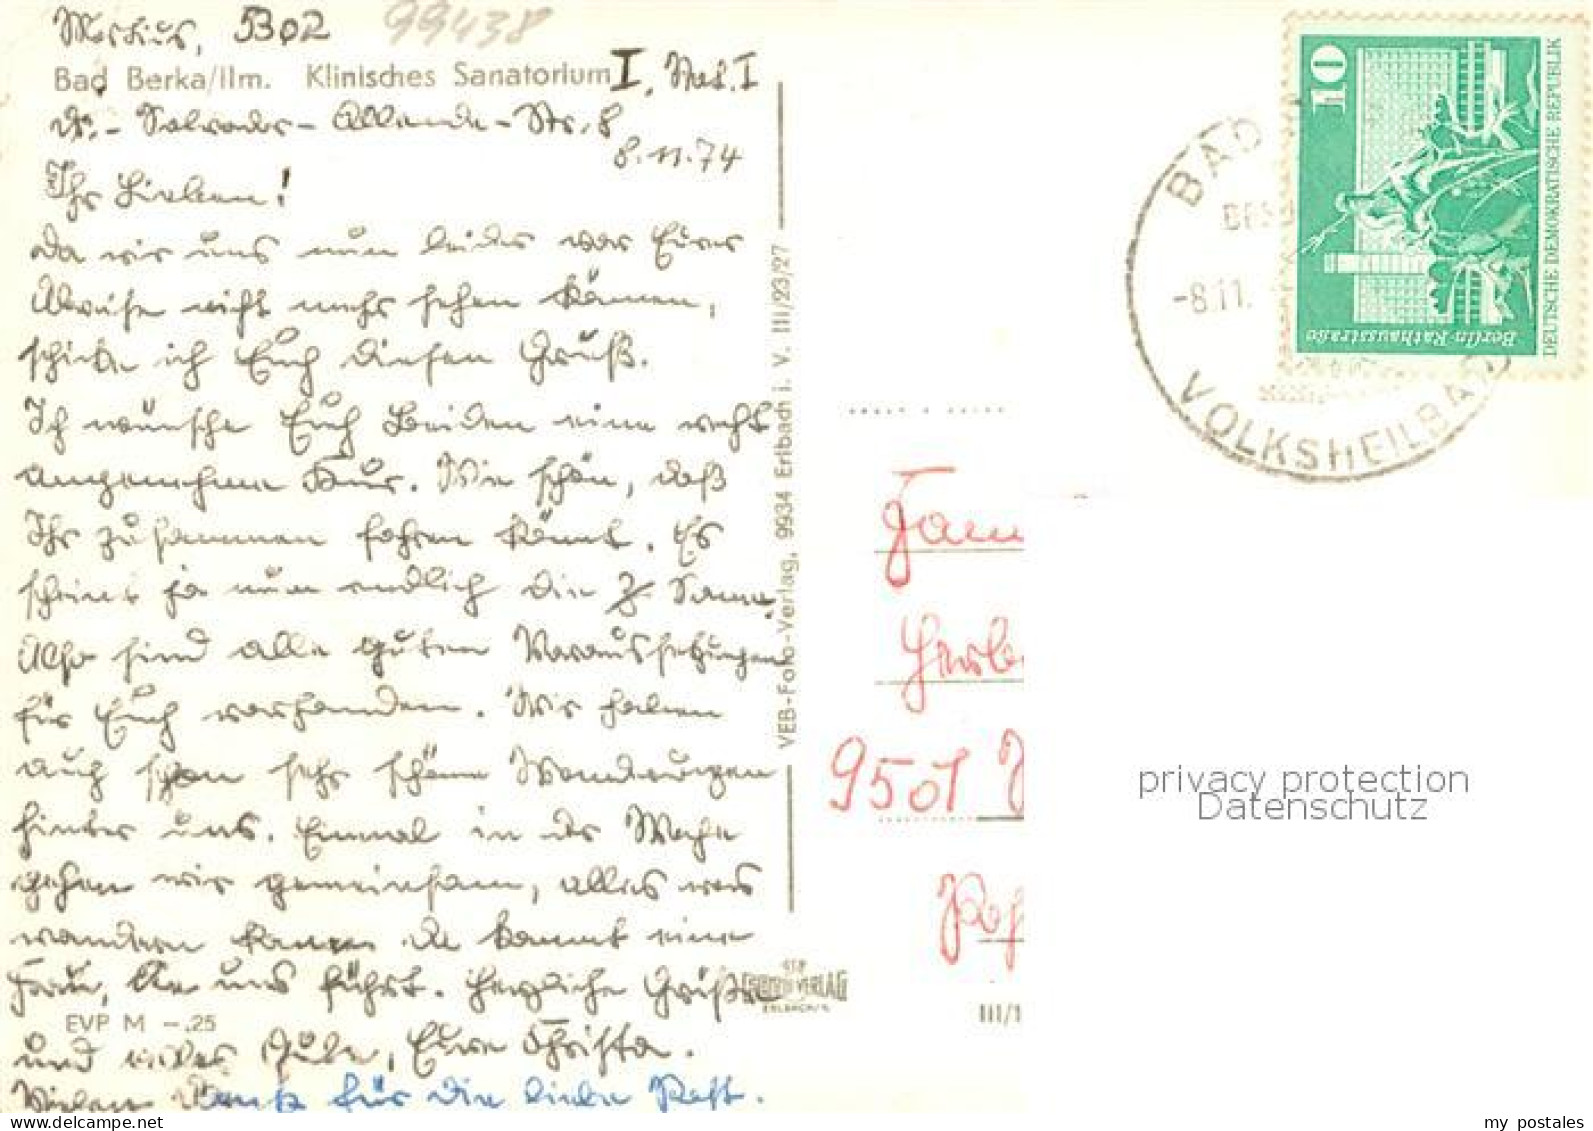 Markus, 5302 99438
Bad Berka/Ilm. Klinisches Sanatorium I, Stat. I
Dr.-Salvador-Allende-Str. 8
8.11.74
Ihr Lieben!
Da wir uns nun leider vor Eurer
Abreise nicht mehr sehen können,
schicke ich Euch diesen Gruß.
Ich wünsche Euch Beiden eine recht
angenehme Kur. Wie schön, daß
Ihr zusammen fahren könnt. Es
scheint ja nun endlich die Sonne.
Also sind alle guten Voraussetzungen
für Euch vorhanden. Wir haben
auch schon sehr schöne Wanderungen
hinter uns. Einmal in der Woche
gehen wir gemeinsam, alles was
wandern kann. Da kommt eine
Frau, die uns führt. Herzliche Grüße
und vieles Gute, Eure Christa.
Vielen Dank für die liebe Post.
EVP M -.25
VEB-Foto-Verlag, 9934 Erlbach i. V. III/23/27
VERLAG
ERLBACH/V.
III/1
10
Berlin-Rathausstraße
DEUTSCHE DEMOKRATISCHE REPUBLIK
BAD
-8.11.
VOLKSHEILBAD
Fam
Herb
9501
privacy protection
Datenschutz
my postales
www.delcampe.net